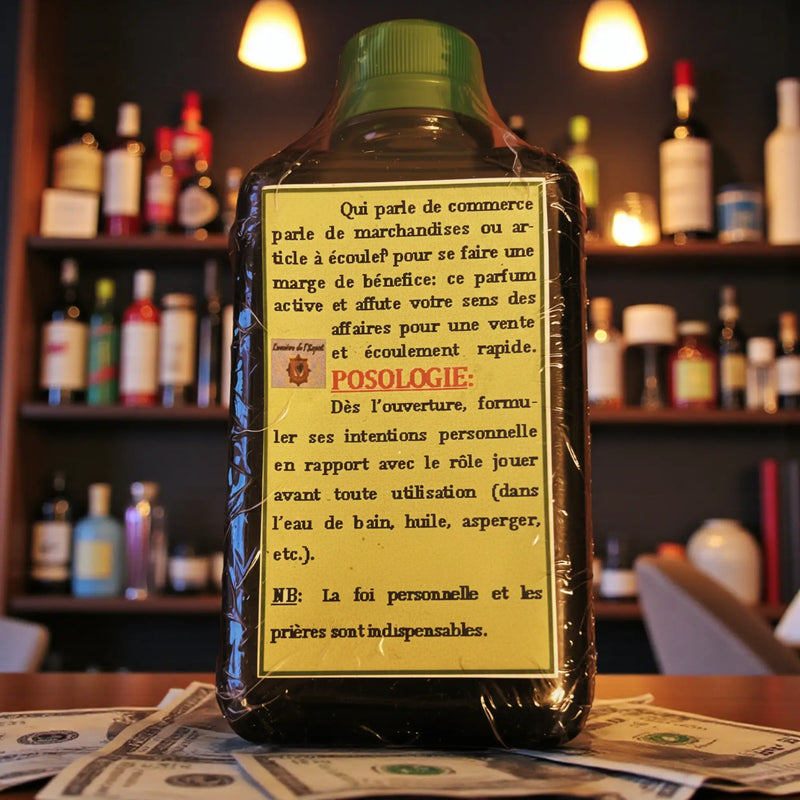 Qui parle de commerce
parle de marchandises ou ar-
ticle à écouler pour se faire une
marge de bénefice: ce parfum
active et affute votre sens des
affaires pour une vente
et écoulement rapide.
Lumière de l'Esprit
POSOLOGIE:
Dès l'ouverture, formu-
ler ses intentions personnelle
en rapport avec le rôle jouer
avant toute utilisation (dans
l'eau de bain, huile, asperger,
etc.).
NB: La foi personnelle et les
prières sont indispensables.